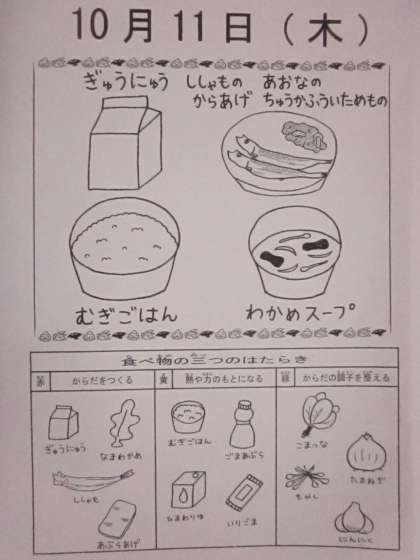 10月11日（木）
ぎゅうにゅう ししゃもの からあげ あおなの ちゅうかふういためもの
むぎごはん わかめスープ
食べ物の三つのはたらき
赤 からだをつくる 黄 熱や力のもとになる 緑 からだの調子を整える
ぎゅうにゅう なまわかめ むぎごはん ごまあぶら こまつな
ししゃも たまねぎ
あぶらあげ ひまわりゆ いりごま もやし にんにく